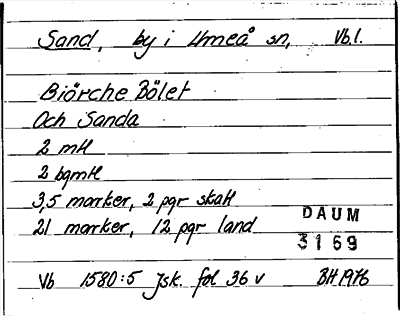 Sand, by i Umeå sn, Vb.l.
Biörche Bölet
Och Sanda
2 mtl
2 bqmtl
3,5 marker, 2 pgr skatt
21 marker, 12 pgr land
DAUM
3169
Vb 1580:5 Jsk. fol 36 v BH 1976